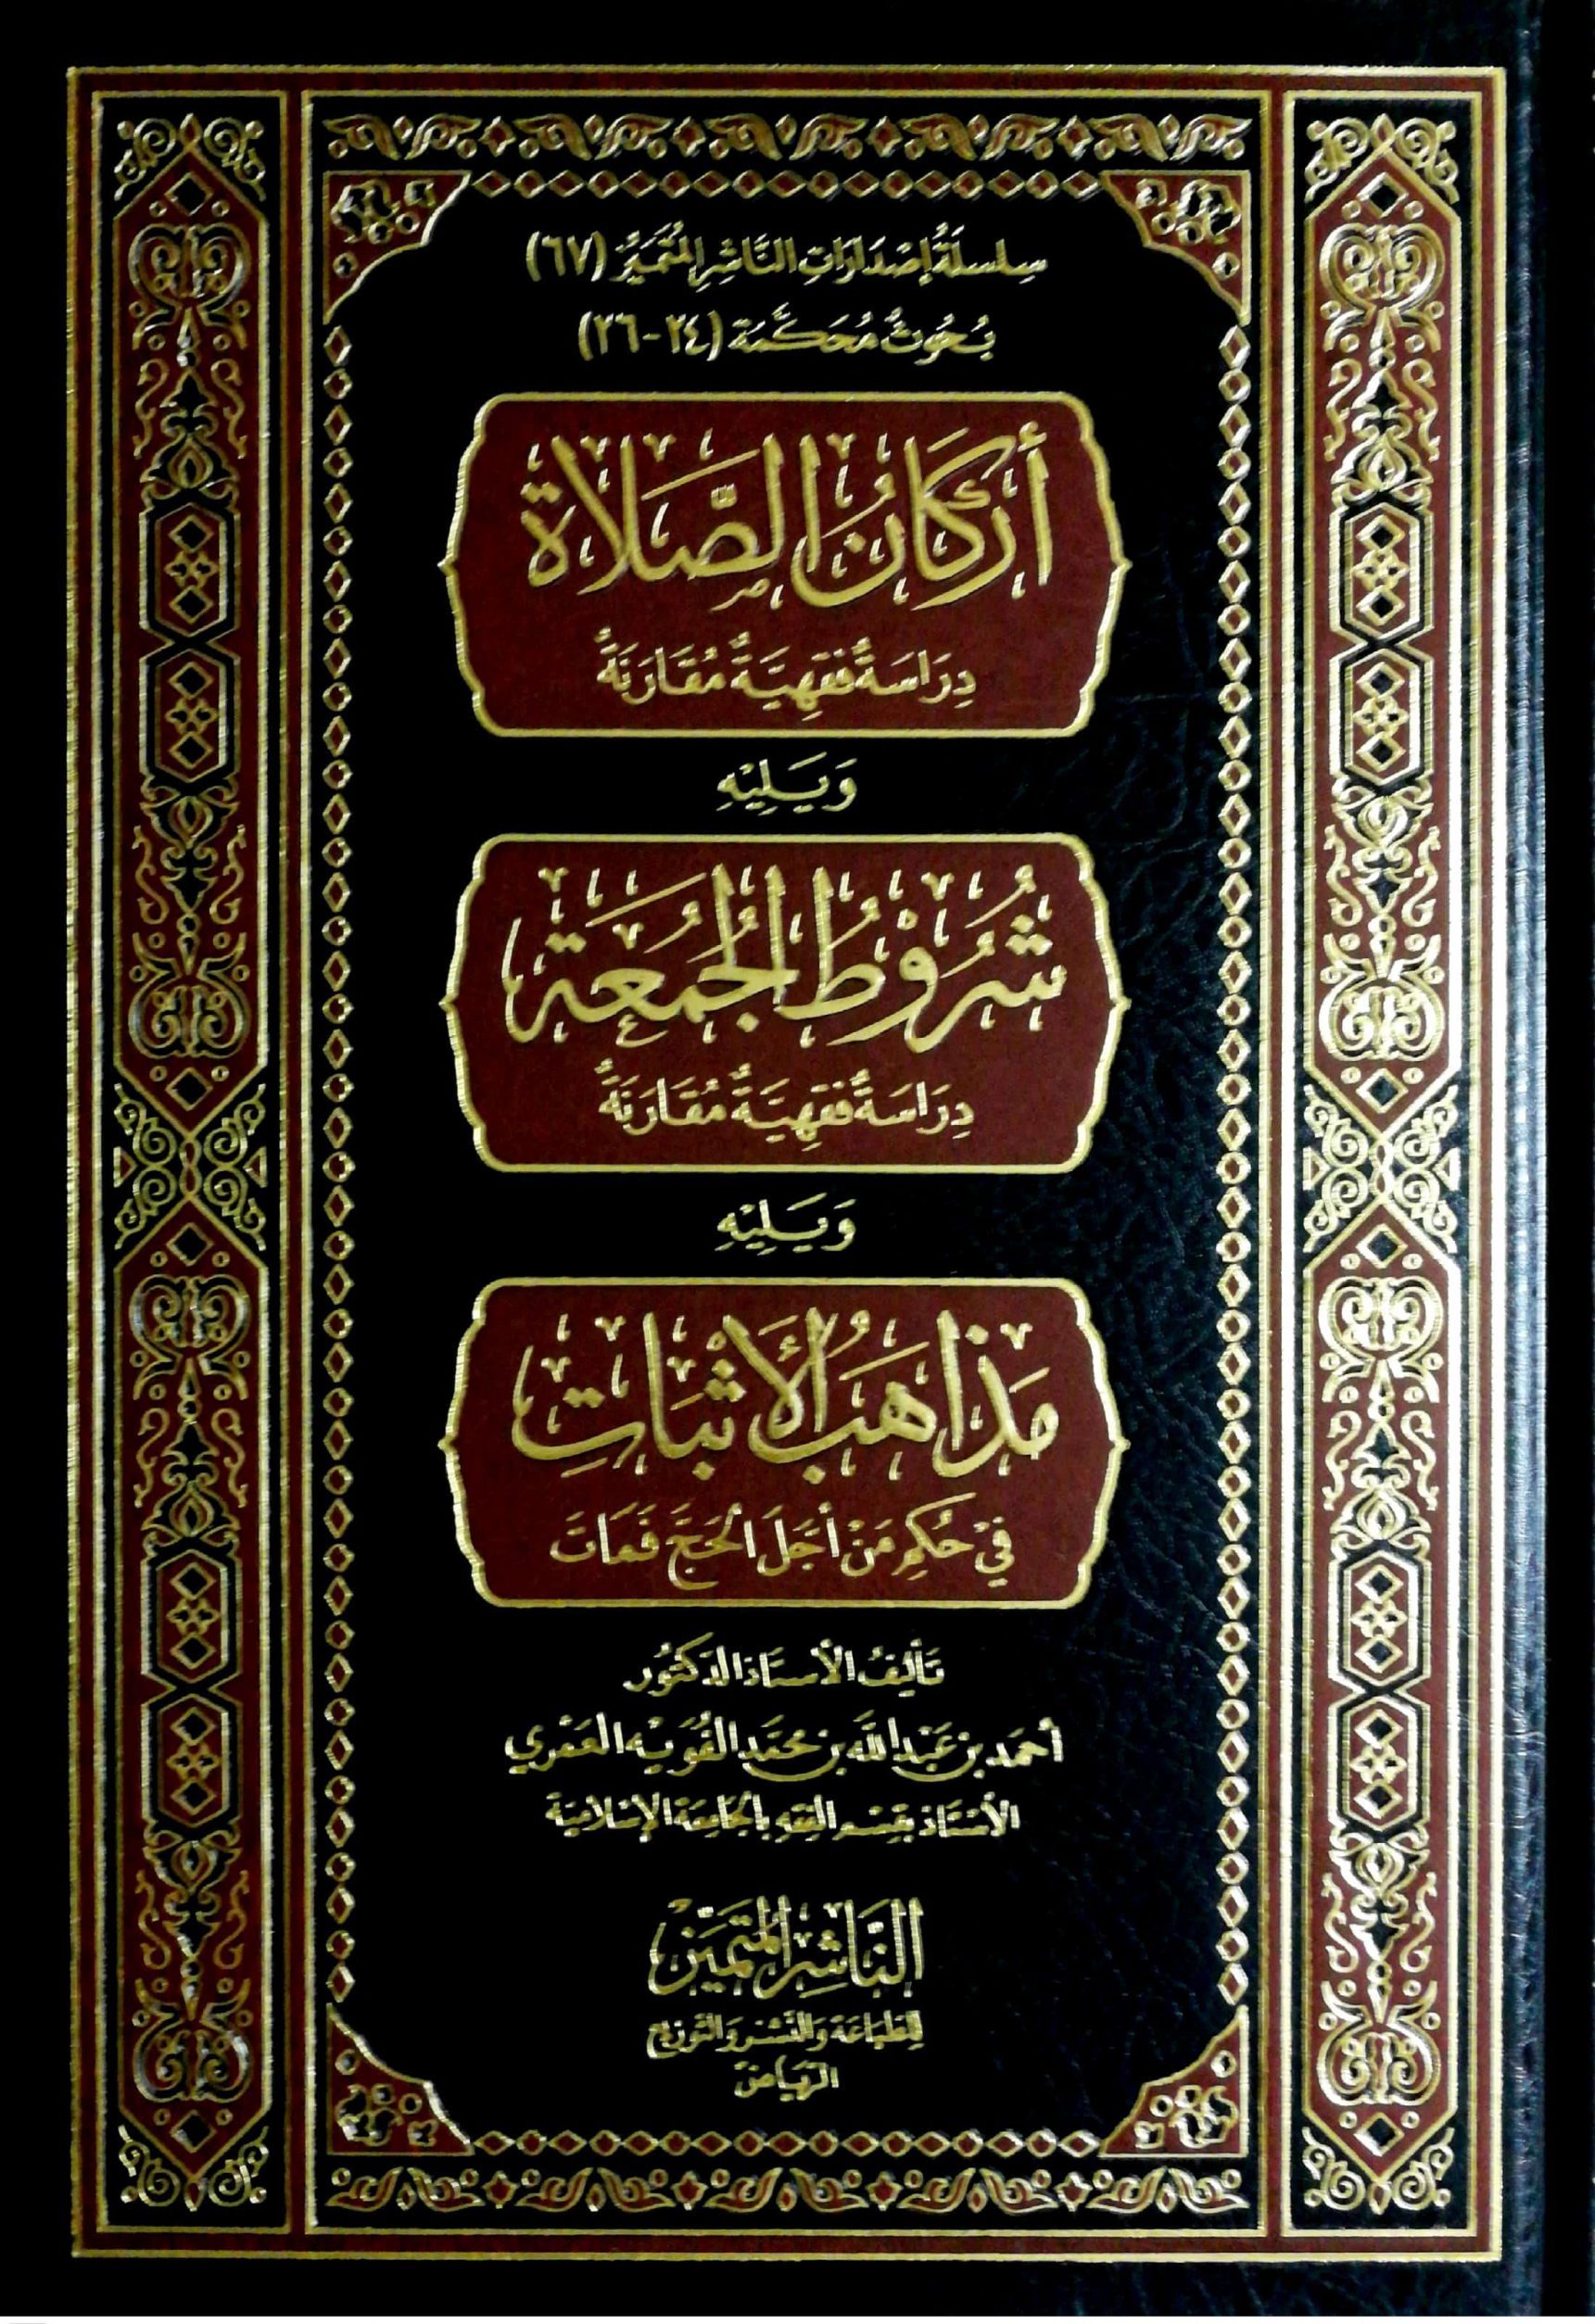 سِلسلَةُ إصْدَارَاتِ النَّاشِرِ المُتَمَيِّزِ (٦٧)
بُحُوثٌ مُحَكَّمَة (٣٤-٣٦)
أَرْكَانُ الصَّلَاة
دِرَاسَةٌ فِقهِيَّةٌ مُقَارَنَةٌ
وَيَلِيْهِ
شُرُوْطُ الجُمُعَة
دِرَاسَةٌ فِقهِيَّةٌ مُقَارَنَةٌ
وَيَلِيْهِ
مَذَاهَبُ الأَثْبَاتِ
فِيْ حُكِم مَنْ أَجَلَ الحَجَّ فَمَاتَ
تَأليفُ الأستَاذ الدكتُور
أحمَد بن عَبْد اللَّه بن محمَّد القُوَيْه العَمْري
الأسْتَاذ بقِسْم الفِقهِ بالجَامِعَة الإسْلَاميَة
النَّاشِرُ المُتَمَيِّز
لِلطِّبَاعَة وَالنَّشْر وَالتَّوزيْع
الرِّيَاض